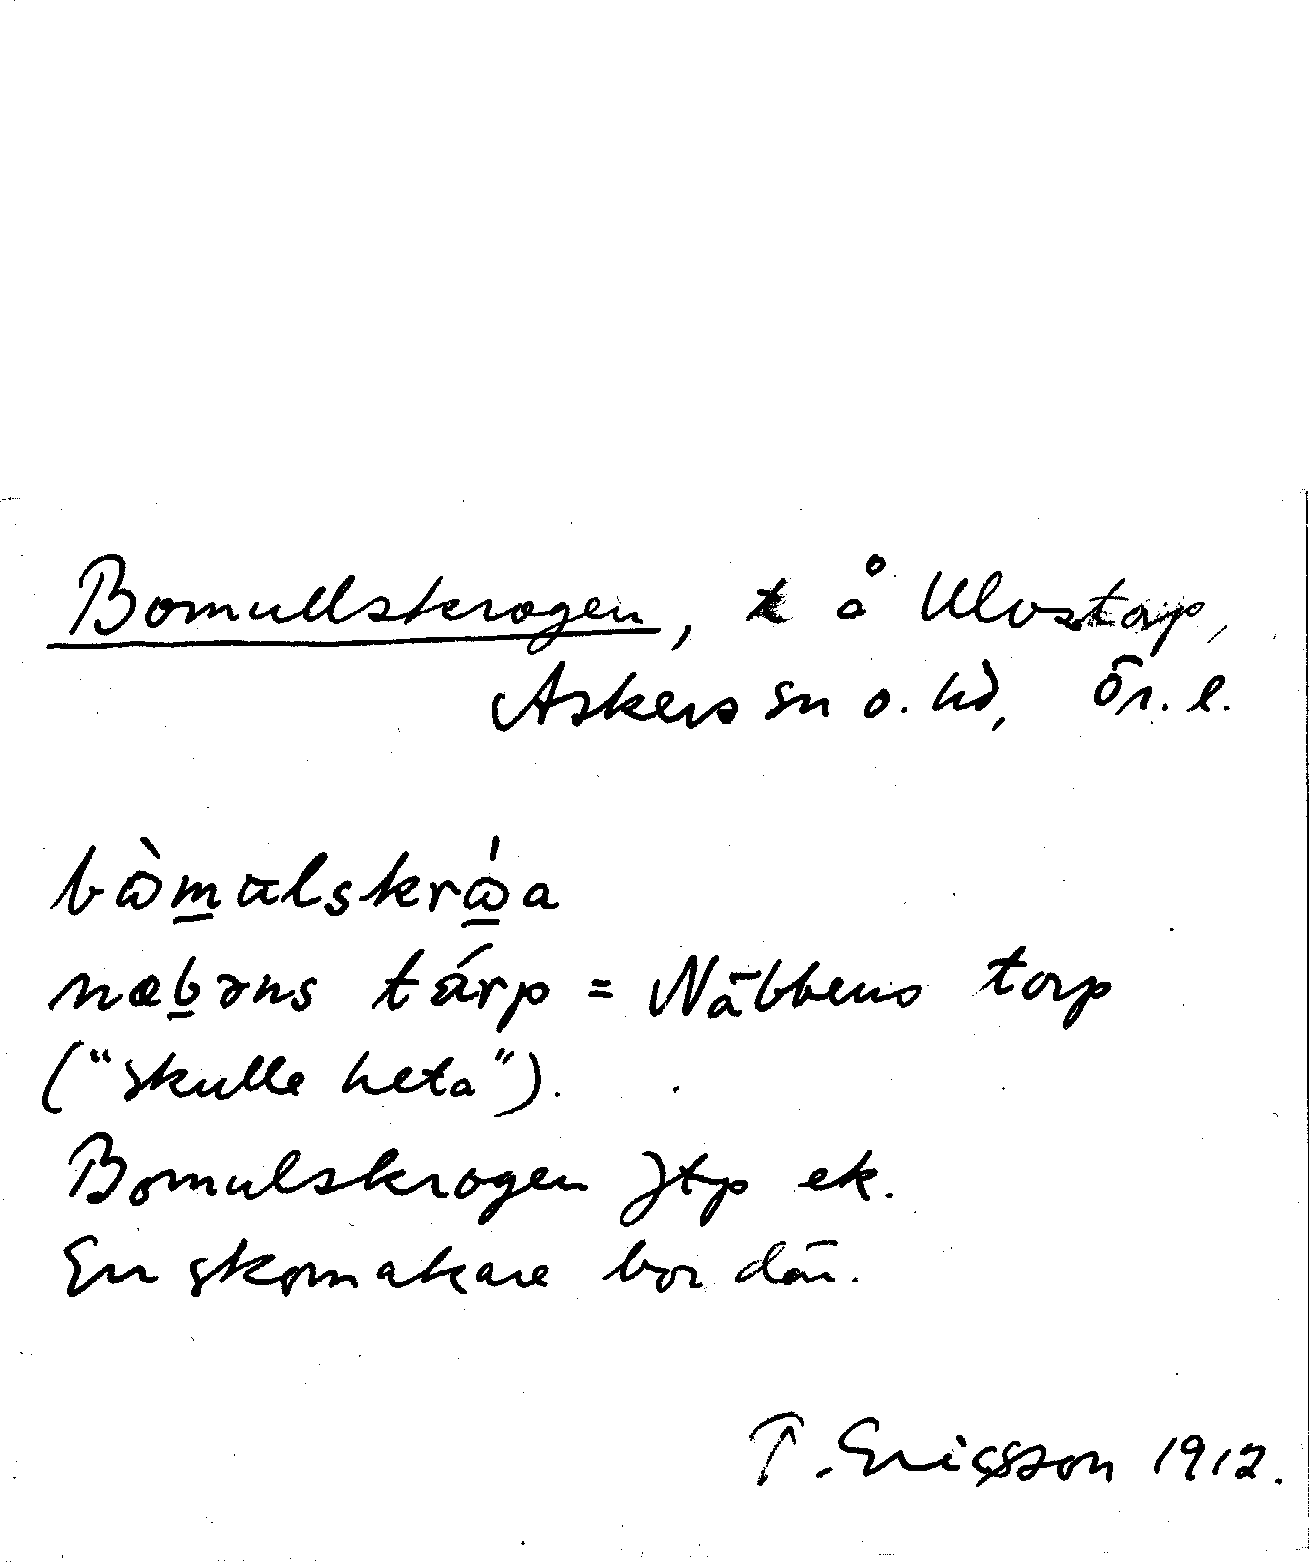 Bomullskrogen, t å Ulvstorp,
Askers sn o. hd, Ör. l.
bòmulskróa
næbəns tárp = Näbbens torp
("skulle heta").
Bomulskrogen Jtp ek.
En skomakare bor där.
T. Ericsson 1912.